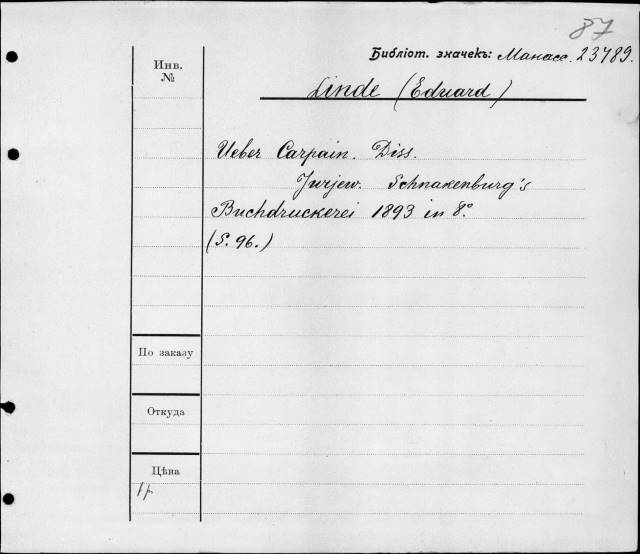 87
Библіот. значекъ: Манасс. 23789.
Инв.
№
Linde (Eduard)
Ueber Carpain. Diss.
Jurjew. Schnakenburg's
Buchdruckerei 1893 in 8°.
(S. 96.)
По заказу
Откуда
Цѣна